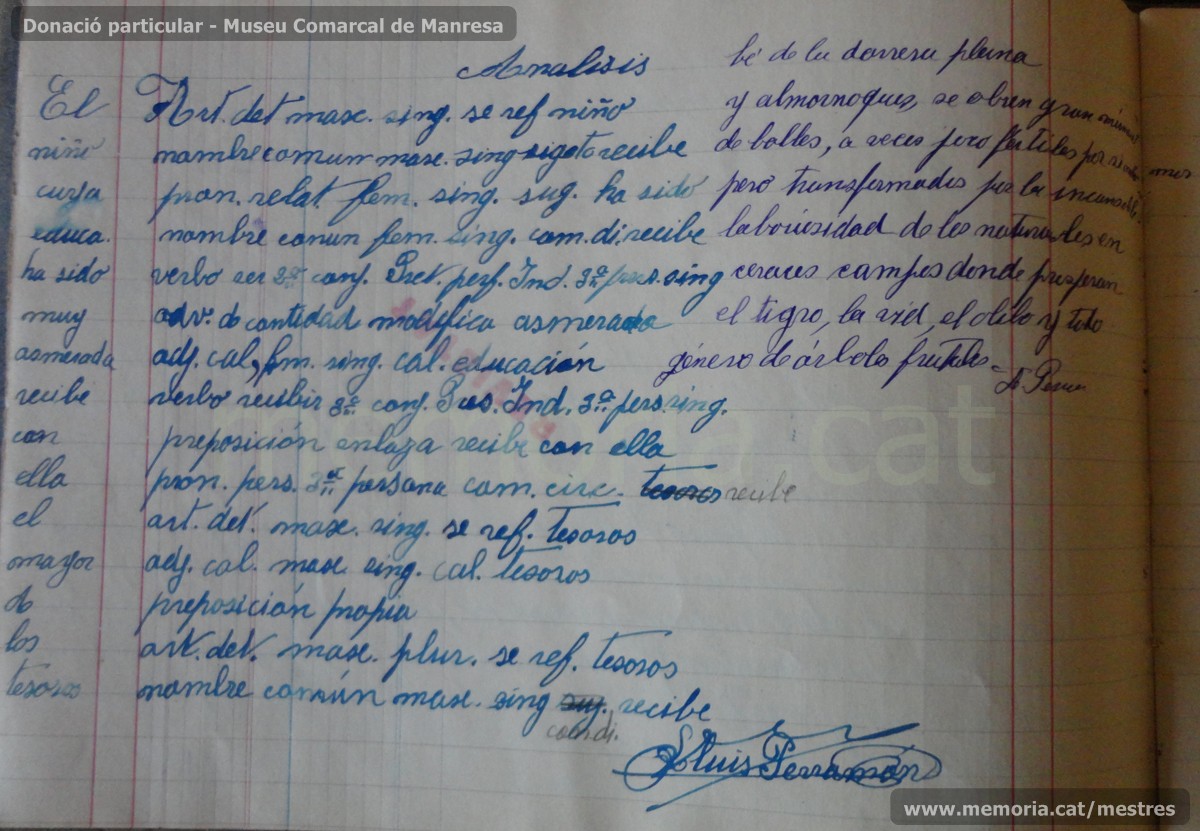 Donació particular - Museu Comarcal de Manresa
Analisis
El Art. det masc. sing. se ref niño
niño nombre comun masc. sing sigeto recibe
cuya pron. relat fem. sing. sug. ha sido
educa. nombre comun fem. sing. com. di. recibe
ha sido verbo ser 2ª conj. Pret. perf. Ind. 3ª pers. sing
muy adv. de cantidad modifica asmerada
asmerada adj. cal, fem. sing. cal. educación
recibe verbo recibir 3ª conj. Pres. Ind. 3ª pers. sing.
con preposición enlaza recibe con ella
ella pron. pers. 3ª persona com. circ. tesoros recibe
el art. det. masc. sing. se ref. tesoros
mayor adj. cal. masc sing. cal. tesoros
de preposición propia
los art. det. masc. plur. se ref. tesoros
tesoros nombre común masc. sing sug. recibe
com di.
Lluis Perramón
bé de la darrera plana
y almornoques, se abren gran
de balles, a veces poco fértiles por si
pero transformados por la incansable
laboriosidad de los naturales en
ceraces campos donde prosperan
el tigro, la vid, el olibo y todo
género de árboles frutales -
memoria.cat
www.memoria.cat/mestres